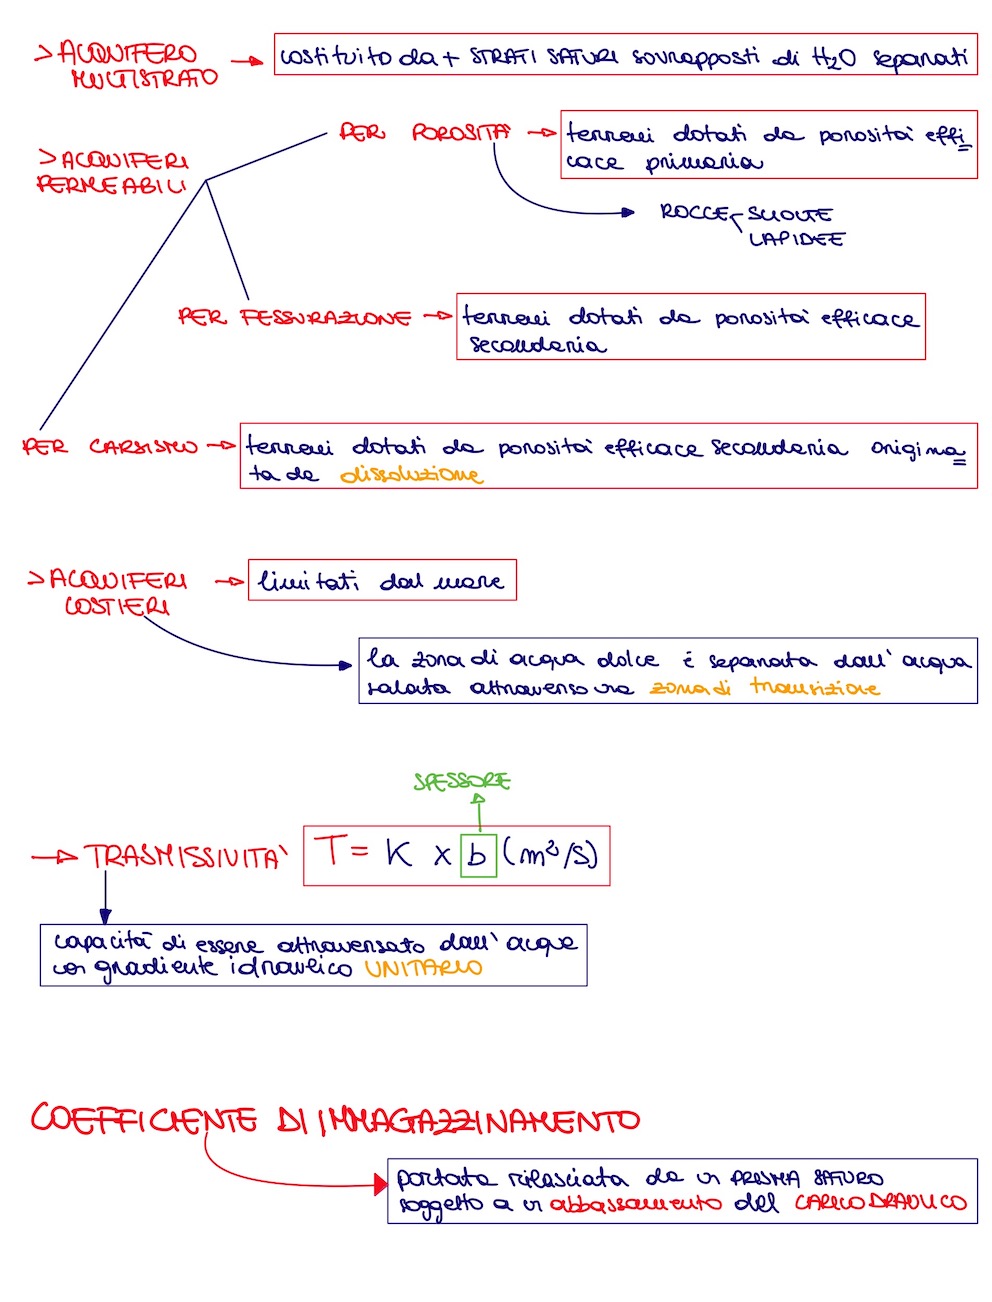 > ACQUIFERO
MULTISTRATO → costituito da + STRATI SATURI sovrapposti di H₂O separati
PER POROSITÀ → terreni dotati da porosità effi
cace primaria
> ACQUIFERI
PERMEABILI
ROCCE SCIOLTE
LAPIDEE
PER FESSURAZIONE → terreni dotati da porosità efficace
secondaria
PER CARSISMO → terreni dotati da porosità efficace secondaria origina
ta da dissoluzione
> ACQUIFERI → limitati dal mare
COSTIERI
la zona di acqua dolce è separata dall'acqua
salata attraverso una zona di transizione
SPESSORE
→ TRASMISSIVITÀ T = K x b (m²/s)
capacità di essere attraversato dall'acqua
con gradiente idraulico UNITARIO
COEFFICIENTE DI IMMAGAZZINAMENTO
portata rilasciata da un PRISMA SATURO
soggetto a un abbassamento del CARICO IDRAULICO